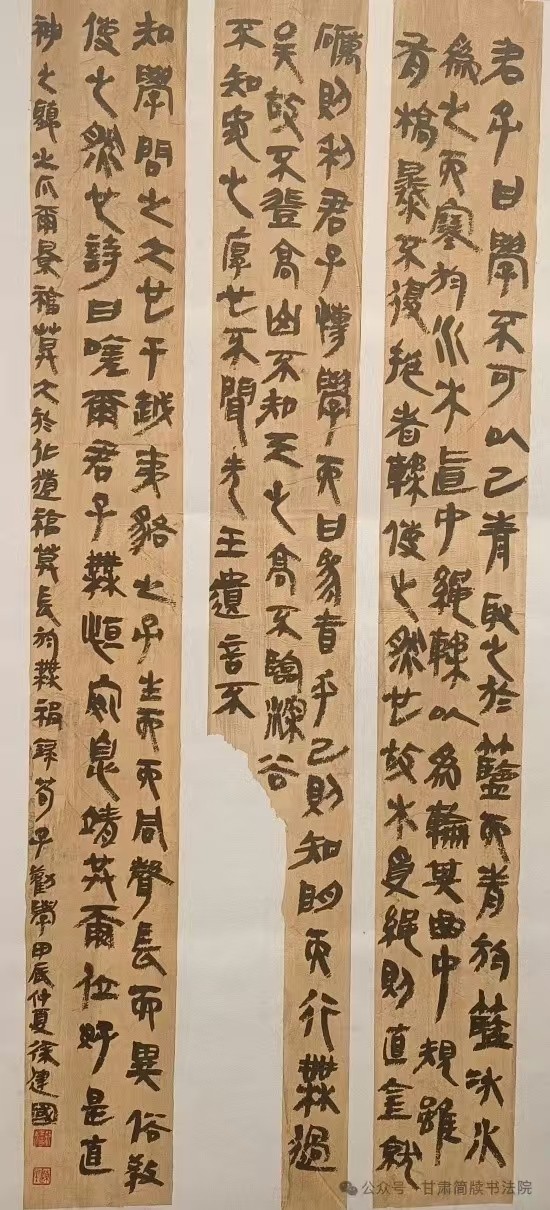 君子曰學不可以已青取之於藍而青於藍冰水
為之而寒於水木直中繩輮以為輪其曲中規雖
有槁暴不復挺者輮使之然也故木受繩則直金就
礪則利君子博學而日參省乎己則知明而行無過
矣故不登高山不知天之高不臨深谷
不知地之厚也不聞先王遺言不
知學問之大也干越夷貉之子生而而同聲長而異俗教
使之然也詩曰嗟爾君子無恒安息靖共爾位好是直
神之聽之介爾景福莫大於化道福莫長於無禍錄荀子勸學甲辰仲夏徐建國
公众号·甘肃简牍书法院